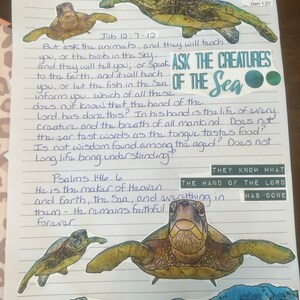 Gen 1:21
Job 12:7-12
But ask the animals, and they will teach
you, or the birds in the sky,
and they will tell you, or speak
to the earth, and it will teach
you, or let the fish in the sea
inform you. Which of all these
does not know that the hand of the
Lord has done this? In his hand is the life of every
creature and the breath of all mankind. Does not
the ear test words as the tongue tastes food?
Is not wisdom found among the aged? Does not
long life bring understanding?
ASK THE CREATURES
OF THE Sea
Psalms 146:6
He is the maker of Heaven
and Earth, the Sea, and everything in
them - He remains faithful
forever
THEY KNOW WHAT
THE HAND OF THE LORD
HAS DONE